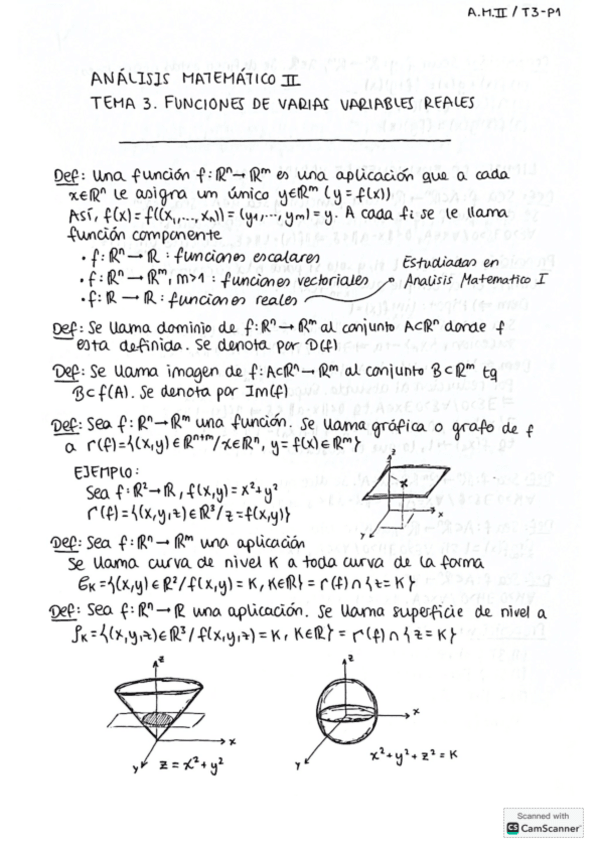 A.M.II / T3-P1
ANÁLISIS MATEMÁTICO II
TEMA 3. FUNCIONES DE VARIAS VARIABLES REALES
Def: Una función f: ℝⁿ → ℝᵐ es una aplicación que a cada
x∈ℝⁿ le asigna un único y∈ℝᵐ (y = f(x))
Así, f(x) = f((x₁,...,xₙ)) = (y₁,...,yₘ) = y. A cada fi se le llama
función componente
· f: ℝⁿ → ℝ : funciones escalares
· f: ℝⁿ → ℝᵐ, m>1 : funciones vectoriales
· f: ℝ → ℝ : funciones reales
Estudiadas en
Analisis Matematico I
Def: Se llama dominio de f: ℝⁿ → ℝᵐ al conjunto A⊂ℝⁿ donde f
esta definida. Se denota por D(f)
Def: Se llama imagen de f: A⊂ℝⁿ → ℝᵐ al conjunto B⊂ℝᵐ tq
B⊂f(A). Se denota por Im(f)
Def: Sea f: ℝⁿ → ℝᵐ una función. Se llama gráfica o grafo de f
a r(f)={(x,y)∈ℝⁿ⁺ᵐ/x∈ℝⁿ, y=f(x)∈ℝᵐ}
EJEMPLO:
Sea f: ℝ² → ℝ, f(x,y) = x²+y²
r(f)={(x,y,z)∈ℝ³/z=f(x,y)}
z
x
y
Def: Sea f: ℝⁿ → ℝᵐ una aplicación
Se llama curva de nivel K a toda curva de la forma
CK={(x,y)∈ℝ²/f(x,y)=K, K∈ℝ} = r(f)∩{z=K}
Def: Sea f: ℝⁿ → ℝ una aplicación. Se llama superficie de nivel a
SK={(x,y,z)∈ℝ³/f(x,y,z)=K, K∈ℝ} = r(f)∩{z=K}
z
x
y
z = x²+y²
z
x
y
x²+y²+z² = K
Scanned with
CS CamScanner